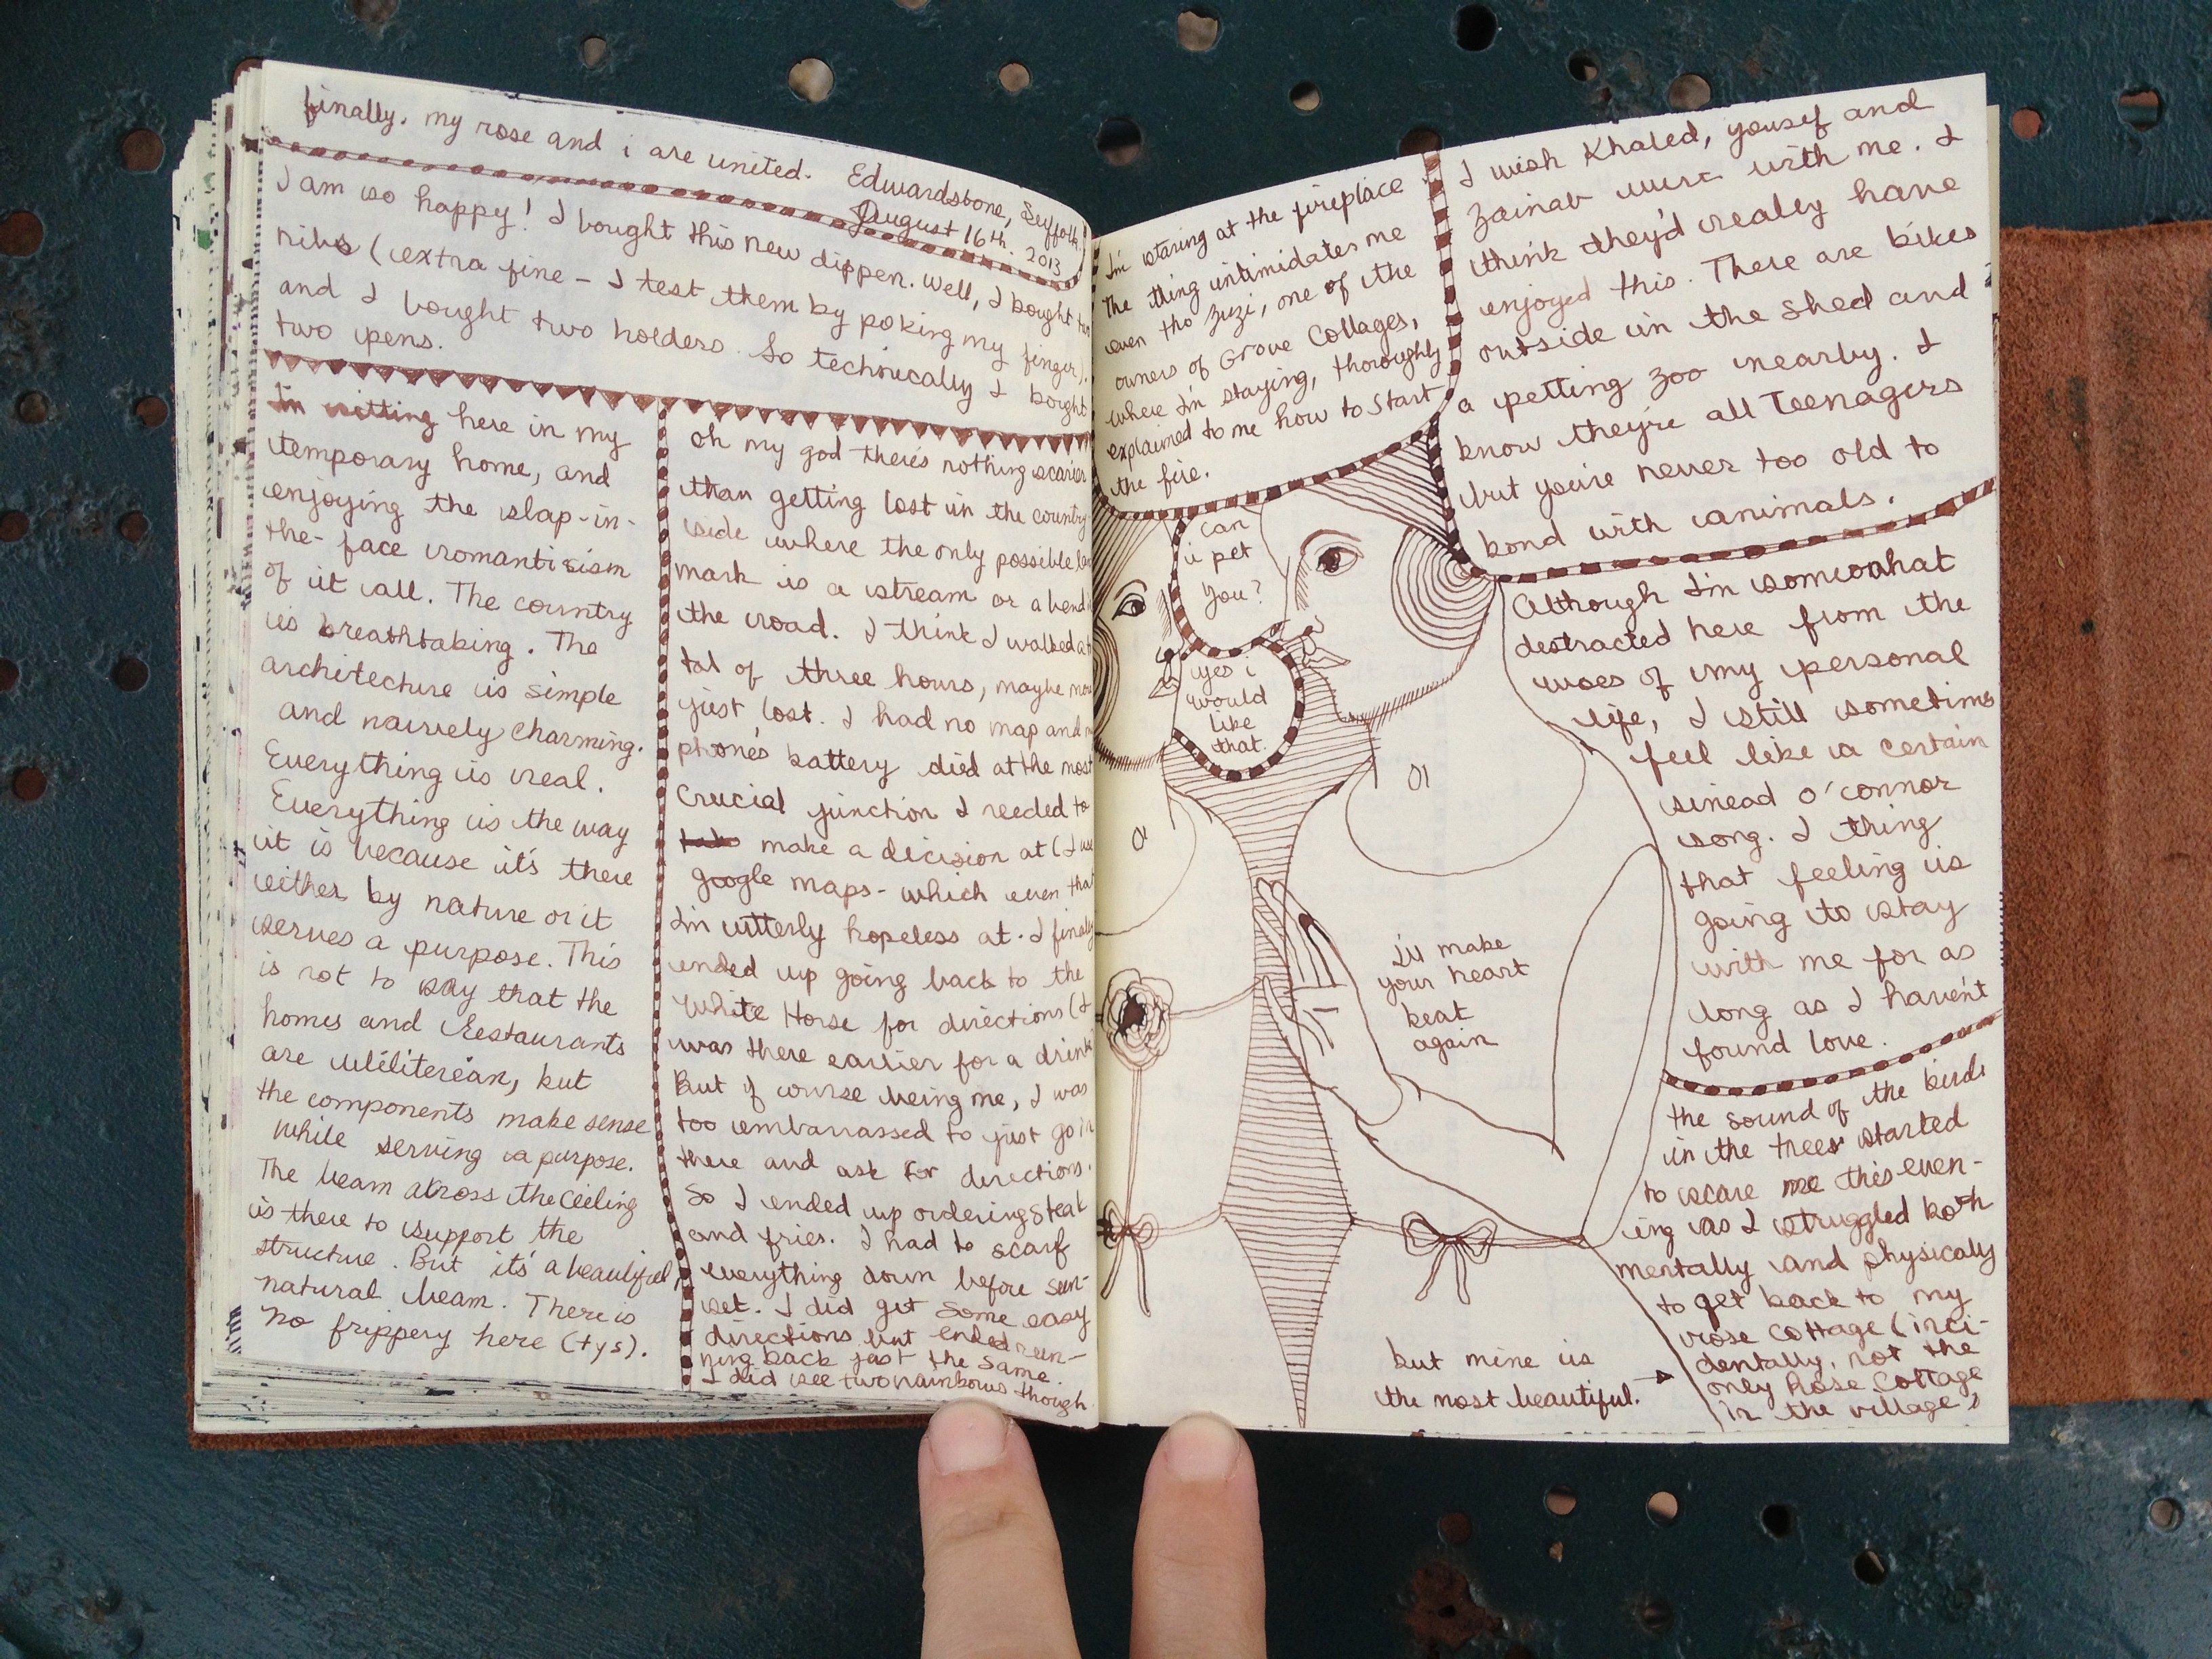 finally, my rose and i are united.
Edwardstone, Suffolk.
August 16th. 2013
I am so happy! I bought this new dip pen. Well, I bought two
nibs (extra fine - I test them by poking my finger).
and I bought two holders. So technically I bought
two pens.
I'm sitting here in my
temporary home, and
enjoying the slap-in-
the-face romantisism
of it all. The country
is breathtaking. The
architecture is simple
and naively charming.
Everything is real.
Everything is the way
it is because it's there
either by nature or it
serves a purpose. This
is not to say that the
homes and restaurants
are
but
the components make sense
while serving a purpose.
The beam across the ceiling
is there to support the
structure. But it's a beautiful,
natural beam. There is
no frippery here (tys).
oh my god there's nothing scarier
than getting lost in the country
side where the only possible
mark is a stream or a bend
the road. I think I walked a
tal of three hours, maybe
just lost. I had no map and
phone's battery died at the most
crucial junction I needed to
make a decision at (I use
google maps - which even that
I'm utterly hopeless at. I finally
ended up going back to the
White Horse for directions (I
was there earlier for a drink
But of course being me, I was
too embarrassed to just go in
there and ask for directions.
So I ended up ordering steak
and fries. I had to scarf
everything down before sun-
set. I did get some easy
directions but ended run-
ning back just the same.
I did see two rainbows though
I'm staring at the fireplace
The thing intimidates me
even tho Zuzi, one of the
owners of Grove Collages,
where I'm staying, thoroughly
explained to me how to start
the fire.
I wish Khaled, yousef and
Zainab were with me. I
think they'd really have
enjoyed this. There are bikes
outside in the shed and
a petting zoo nearby. I
know they're all teenagers
but you're never too old to
bond with animals.
can
i pet
you?
yes i
would
like
that.
Although I'm somewhat
destracted here from the
woes of my personal
life, I still sometims
feel like a certain
sinead o'connor
song. I thing
that feeling is
going to stay
with me for as
long as I haven't
found love.
I'll make
your heart
beat
again
the sound of the birds
in the trees started
to scare me this even-
ing as I struggled both
mentally and physicaly
to get back to my
rose cottage (inci-
dentally, not the
only Rose Cottage
in the village)
but mine is
the most beautiful.